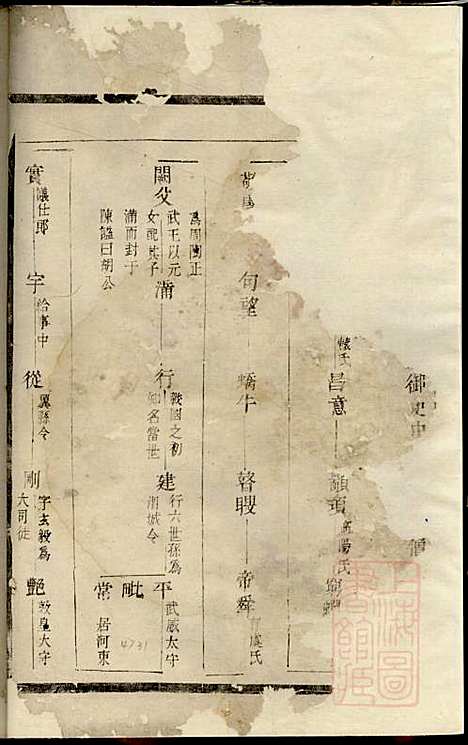 御史中
懷氏
昌意
顓頊
高陽氏
窮蟬
句望
蟜牛
瞽瞍
帝舜
有虞氏
閼父
為周陶正
武王以元
女配其子
滿而封于
陳諡曰胡公
滿
行
戰國之初
知名當世
建
行六世孫為
平
武威太守
毗
常
居河東
4731
實
議仕郎
宇
給事中
從
襄縣令
剛
字玄毅為
大司徒
艷
敦皇太守
上海圖書館藏